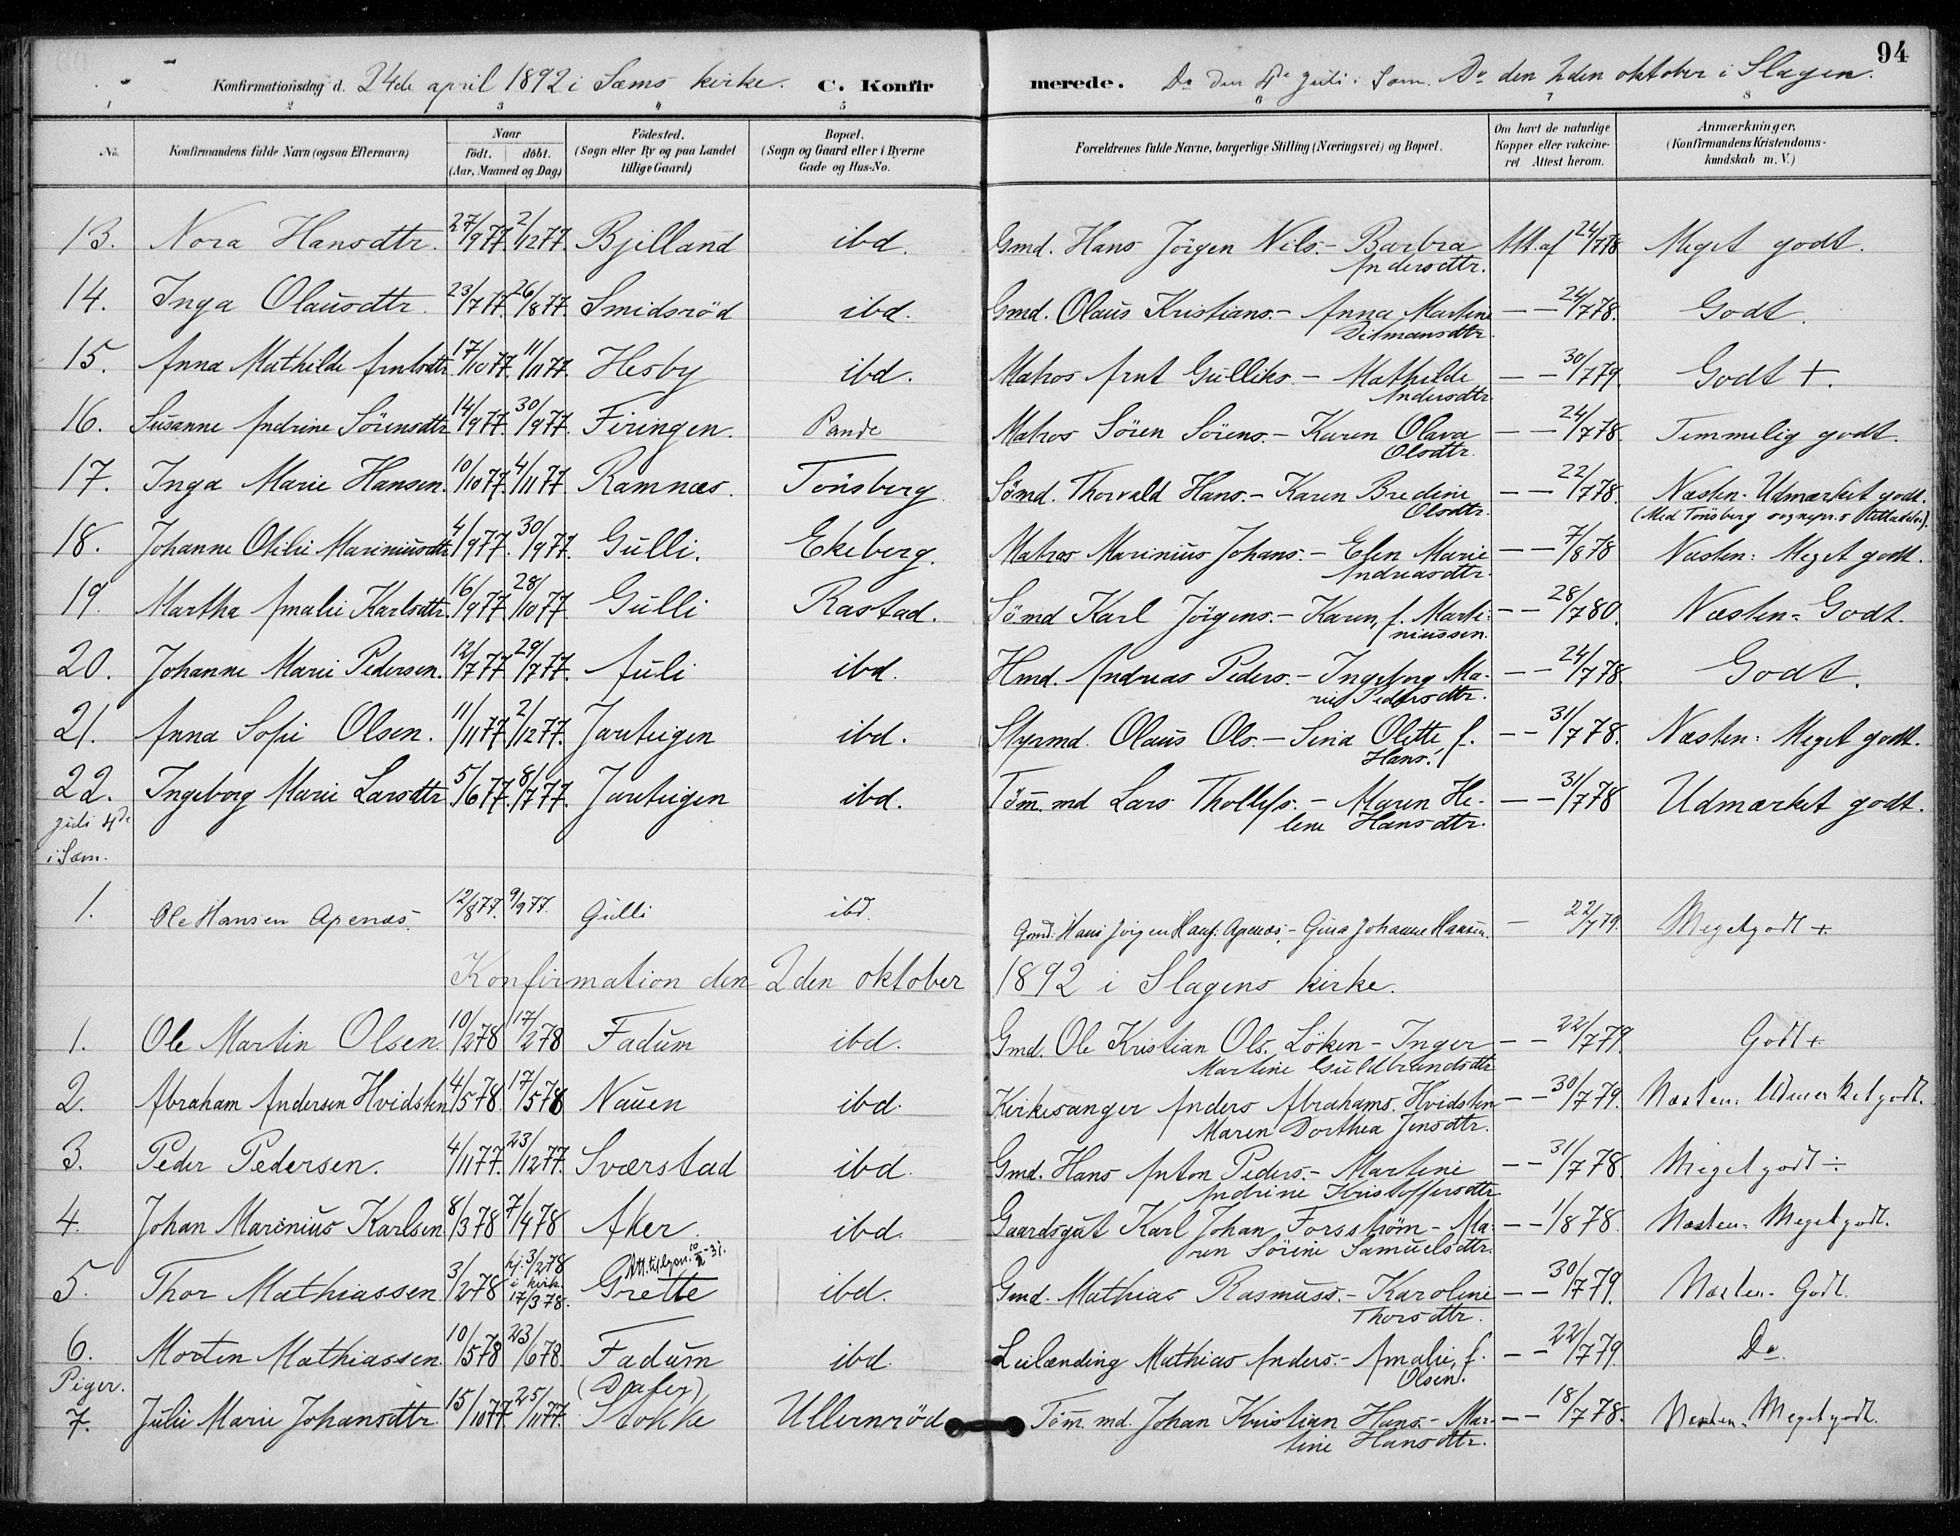 94
Konfirmationsdag d. 24de april 1892 i Sæms kirke. C. Konfir merede. Do den 4de Juli i Sæm. Do den 2den oktober i Slagen.
1 2 3 4 5 6 7 8
No. Konfirmandens fulde Navn (ogsaa Efternavn) Naar født. døbt. (Aar, Maaned og Dag) Fødested. (Sogn eller By og paa Landet tillige Gaard) Bopæl. (Sogn og Gaard eller i Byerne Gade og Hus-No. Forældrenes fulde Navne, borgerlige Stilling (Næringsvei) og Bopæl. Om havt de naturlige Kopper eller vakcineret. Attest herom. Anmærkninger. (Konfirmandens Kristendomskundskab m. V.)
13. Nora Hansdtr. 27/9 77. 2/12 77. Bjelland ibd. Gmd. Hans Jørgen Nils.- Barbra Att. af 24/7 78. Meget godt.
Andersdtr.
14. Inga Olausdtr. 23/7 77. 26/8 77. Smidsrød ibd. Gmd. Olaus Kristians.- Anna Martine — — 24/7 78. Godt.
Ditmansdtr.
15. Anna Mathilde Arntsdtr. 17/10 77. 11/11 77. Hesby ibd. Matros Arnt Gulliks. - Mathilde — — 30/7 79. Godt +.
Andersdtr.
16. Susanne Andrine Sörensdtr. 14/9 77. 30/9 77. Firingen. Pande Matros Sören Sörens.- Karen Olava — — 24/7 78. Temmelig godt.
Olsdtr.
17. Inga Marie Hansen. 10/10 77. 4/11 77. Ramnæs. Tönsberg Sömd. Thorvald Hans.- Karen Bredine — — 22/7 78. Næsten. Udmærket godt.
Olsdtr. (Med Tönsberg sognepr.s
18. Johanne Otilie Mariniusdtr. 4/9 77. 30/9 77. Gulli. Ekeberg. Matros Marinius Johans.- Elen Marie — — 7/8 78 Næsten: Meget godt.
Andreasdtr.
19. Martha Amalie Karlsdtr. 16/9 77. 28/10 77. Gulli Rastad. Sömd Karl Jörgens.- Karen, f. Marti- — — 28/7 80. Næsten- Godt.
niussen.
20. Johanne Marie Pedersen. 12/7 77. 29/7 77. Auli ibd. Hmd. Andreas Peders.- Ingeborg Ma- — — 24/7 78. Godt.
rie Pedersdtr.
21. Anna Sofie Olsen. 11/11 77. 2/12 77. Jarteigen ibd. Styrmd. Olaus Ols.- Sina Olette, f. — — 31/7 78. Næsten: Meget godt.
Hans.
22. Ingeborg Marie Larsdtr. 5/6 77. 8/7 77. Jarteigen ibd. Tömmd Lars Thollefs.- Maren He- — — 31/7 78 Udmærket godt.
lene Hansdtr.
Juli 4de
i Sæm.
1. Ole Hansen Apenæs. 12/8 77. 9/9 77. Gulli ibd. Gmd. Hans Jörgen Hans. Apenæs,- Gina Johanne Hansen. — 22/7 79. Meget godt +
Konfirmation den 2den oktober 1892 i Slagens kirke.
1. Ole Martin Olsen. 10/2 78 17/2 78 Fadum ibd. Gmd. Ole Kristian Ols. Löken- Inger — — 22/7 79. Godt +
Martine Guldbrandsdtr.
2. Abraham Andersen Hvidsten 4/5 78. 17/5 78 Nauen ibd. Kirkesanger Anders Abrahams. Hvidsten — — 30/7 79. Næsten. Udmerket godt.
Maren Dorthea Jensdtr.
3. Peder Pedersen. 4/11 77. 23/12 77. Sværstad ibd. Gmd. Hans Anton Peders.- Martine — — 31/7 78. Meget godt ÷
Andrine Kristoffersdtr.
4. Johan Marinius Karlsen 8/3 78 7/4 78 Aker. ibd. Gaardsgut Karl Johan Forsström- Ma- — — 1/8 78. Næsten- Meget godt.
ren Sörine Samuelsdtr.
5. Thor Mathiassen 3/2 78 hj. 3/2 78 i kirk. 17/3 78. Grette ibd. Gmd. Mathias Rasmuss.- Karoline — — 30/7 79. Næsten- Godt.
Thorsdtr.
6. Morten Mathiassen. 10/5 78 23/6 78. Fadum ibd. Leilænding Mathias Anders.- Amalie, f. — — 22/7 79. Do
Olsen.
Piger.
7. Julie Marie Johansdtr. 15/10 77. 25/11 77. Stokke Ullernröd Tömmd. Johan Kristian Hans.- Mar- — — 18/7 78. Næsten. Meget godt.
tine Hansdtr.